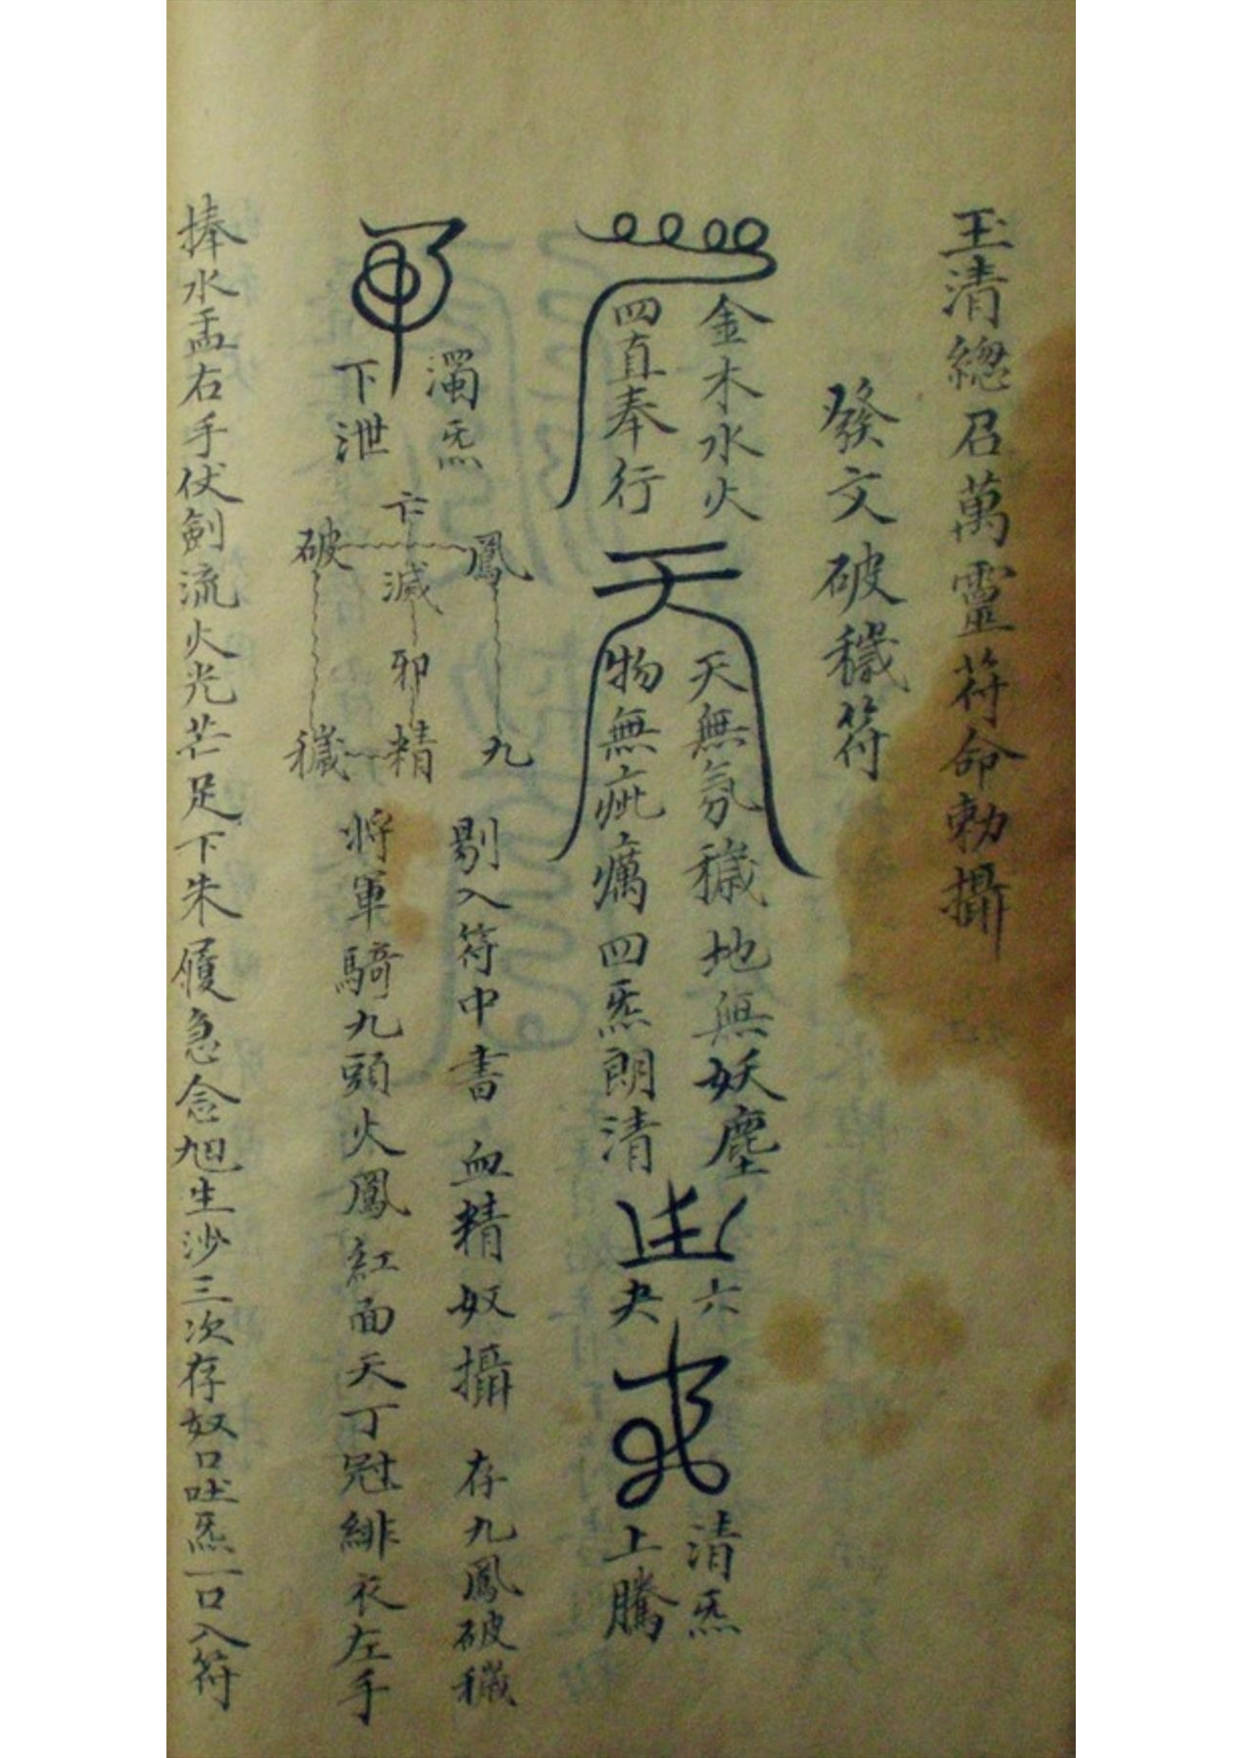 玉清總召萬靈符命勅攝
發文破穢符
金木水火
四直奉行
天無氛穢地無妖塵
物無疵癘四炁朗清
六
夬
清炁
上騰
濁炁
下泄
鳳
九
滅邪精
破
穢
剔入符中書血精奴攝 存九鳳破穢
將軍騎九頭火鳳紅面天丁冠緋衣左手
捧水盂右手伏劍流火光芒足下朱履急念旭生沙三次存奴口吐炁一口入符